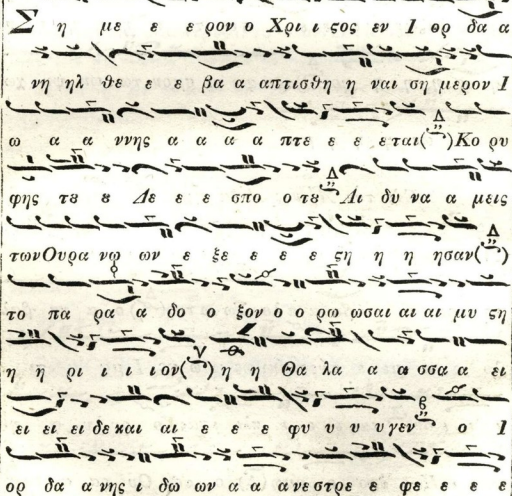 Σ η με ε ε ρον ο Χρι ι ςος εν Ι ορ δα α
νη ηλ θε ε ε βα α απτισθη η ναι ση μερον Ι
ω α α ννης α α α α πτε ε ε εται( Δ )Κο ρυ
φης τȣ ȣ Δε ε ε σπο ο τȣ Δ Αι δυ να α μεις
τωνΟυρα νω ων ε ξε ε ε ε ςη η η ησαν( Δ )
το πα ρα α δο ο ξον ο ο ρω ωσαι αι αι μυ ςη
η η ρι ι ι ι ον( γ ) η η Θα λα α α σσα α ει
ει ει ει δε και αι ε ε ε φυ υ υ υ γεν ο Ι
ορ δα α νης ι δω ων α α ανεστρε ε φε ε ε ε